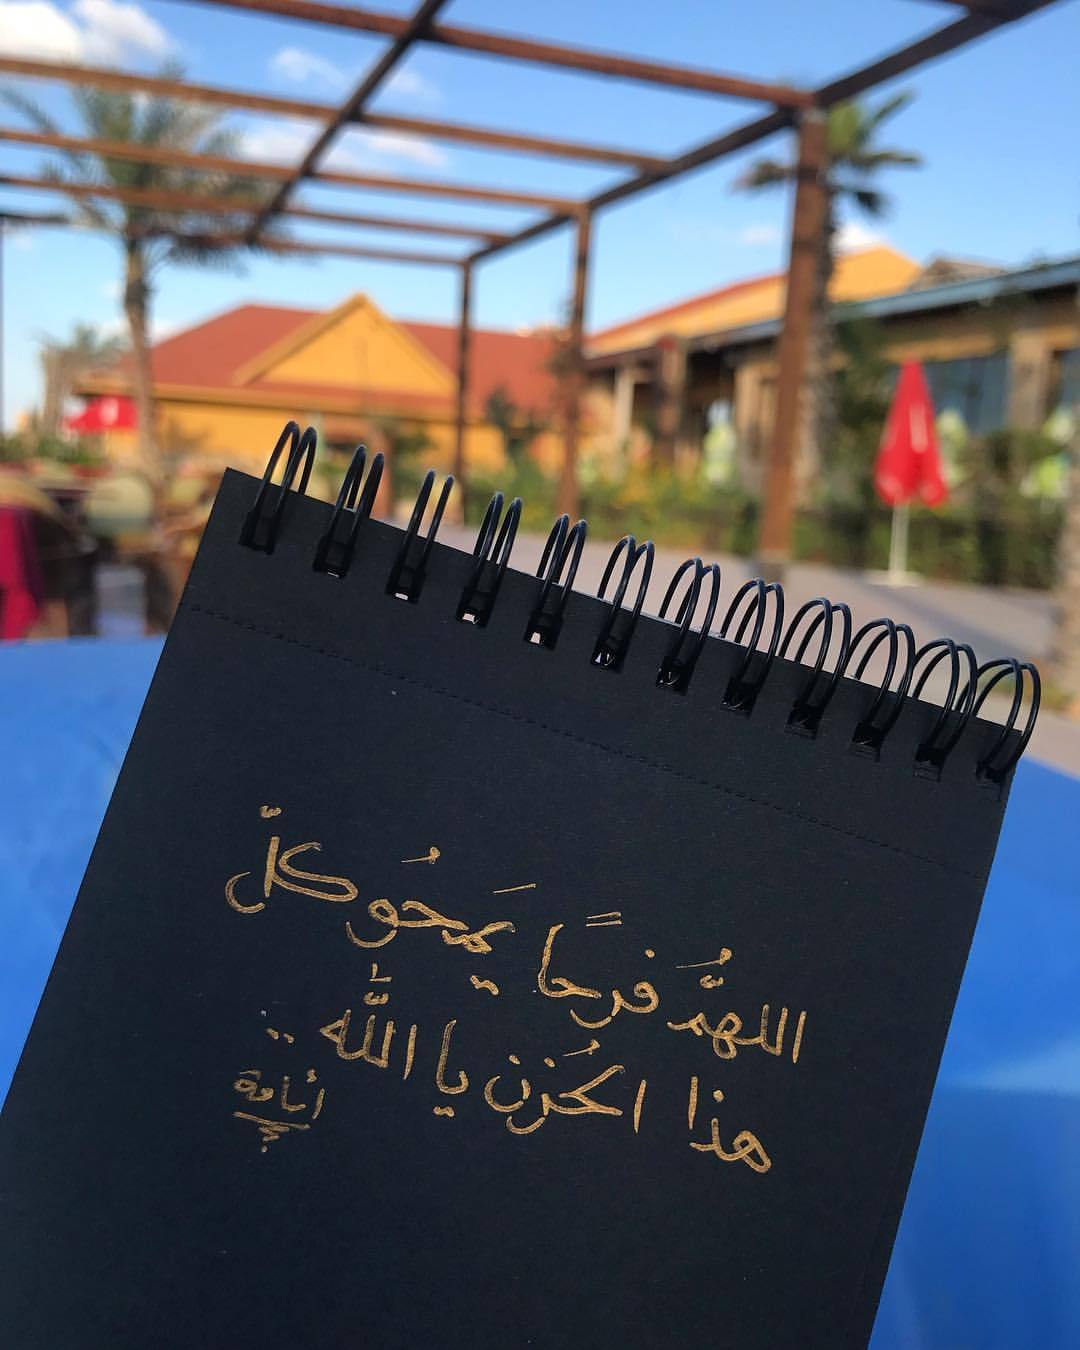 اللهُمَّ فرحًا يَمحُو كلّ
هذا الحُزن يا اللَّه ..
أسامة